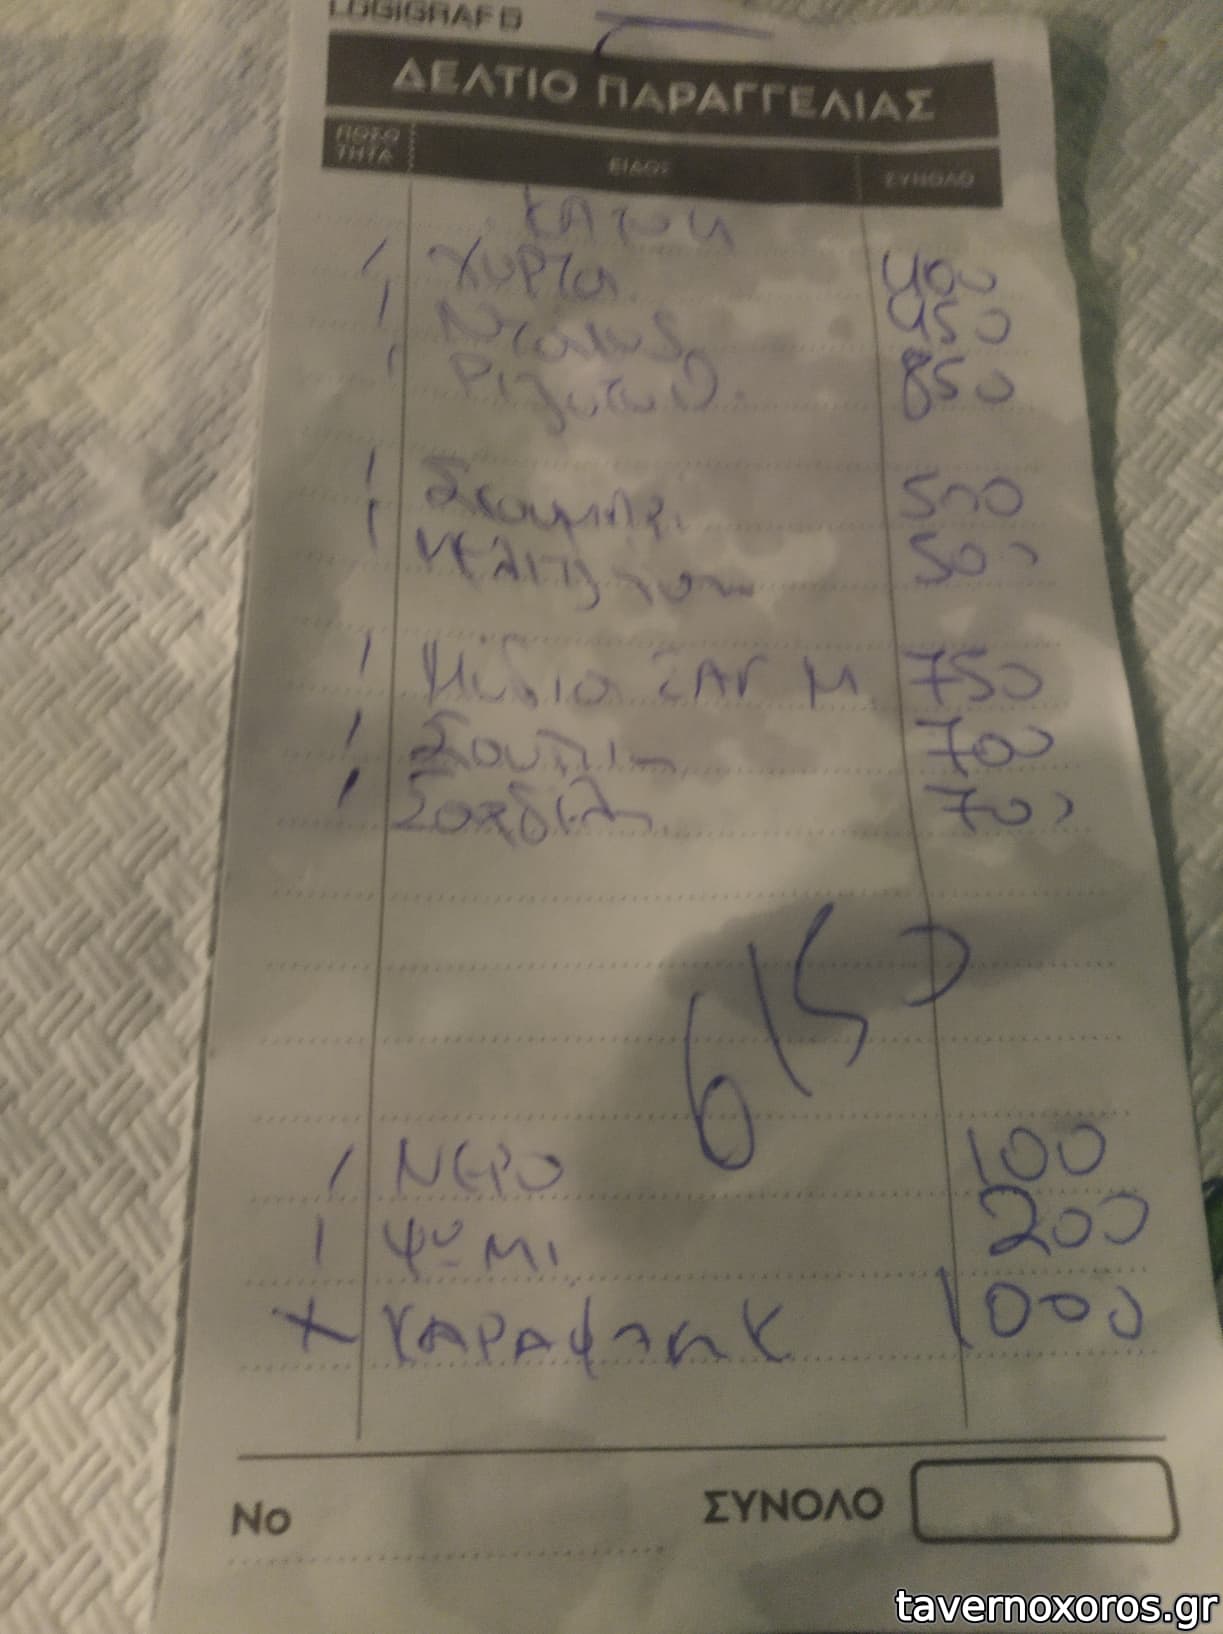 LOGIGRAF
ΔΕΛΤΙΟ ΠΑΡΑΓΓΕΛΙΑΣ
ΠΟΣΟ
ΤΗΤΑ ΕΙΔΟΣ ΣΥΝΟΛΟ
1 Χυρτα 400
1 Ντακος 450
1 850
1 Σκουμπρι 500
1 500
1 Μυδια ΣΑΓ Μ. 750
1 Σουπια 700
1 Σαρδελα 700
6150
1 ΝΕΡΟ 100
1 ΨΩΜΙ 200
1000
Νο ΣΥΝΟΛΟ
tavernoxoros.gr